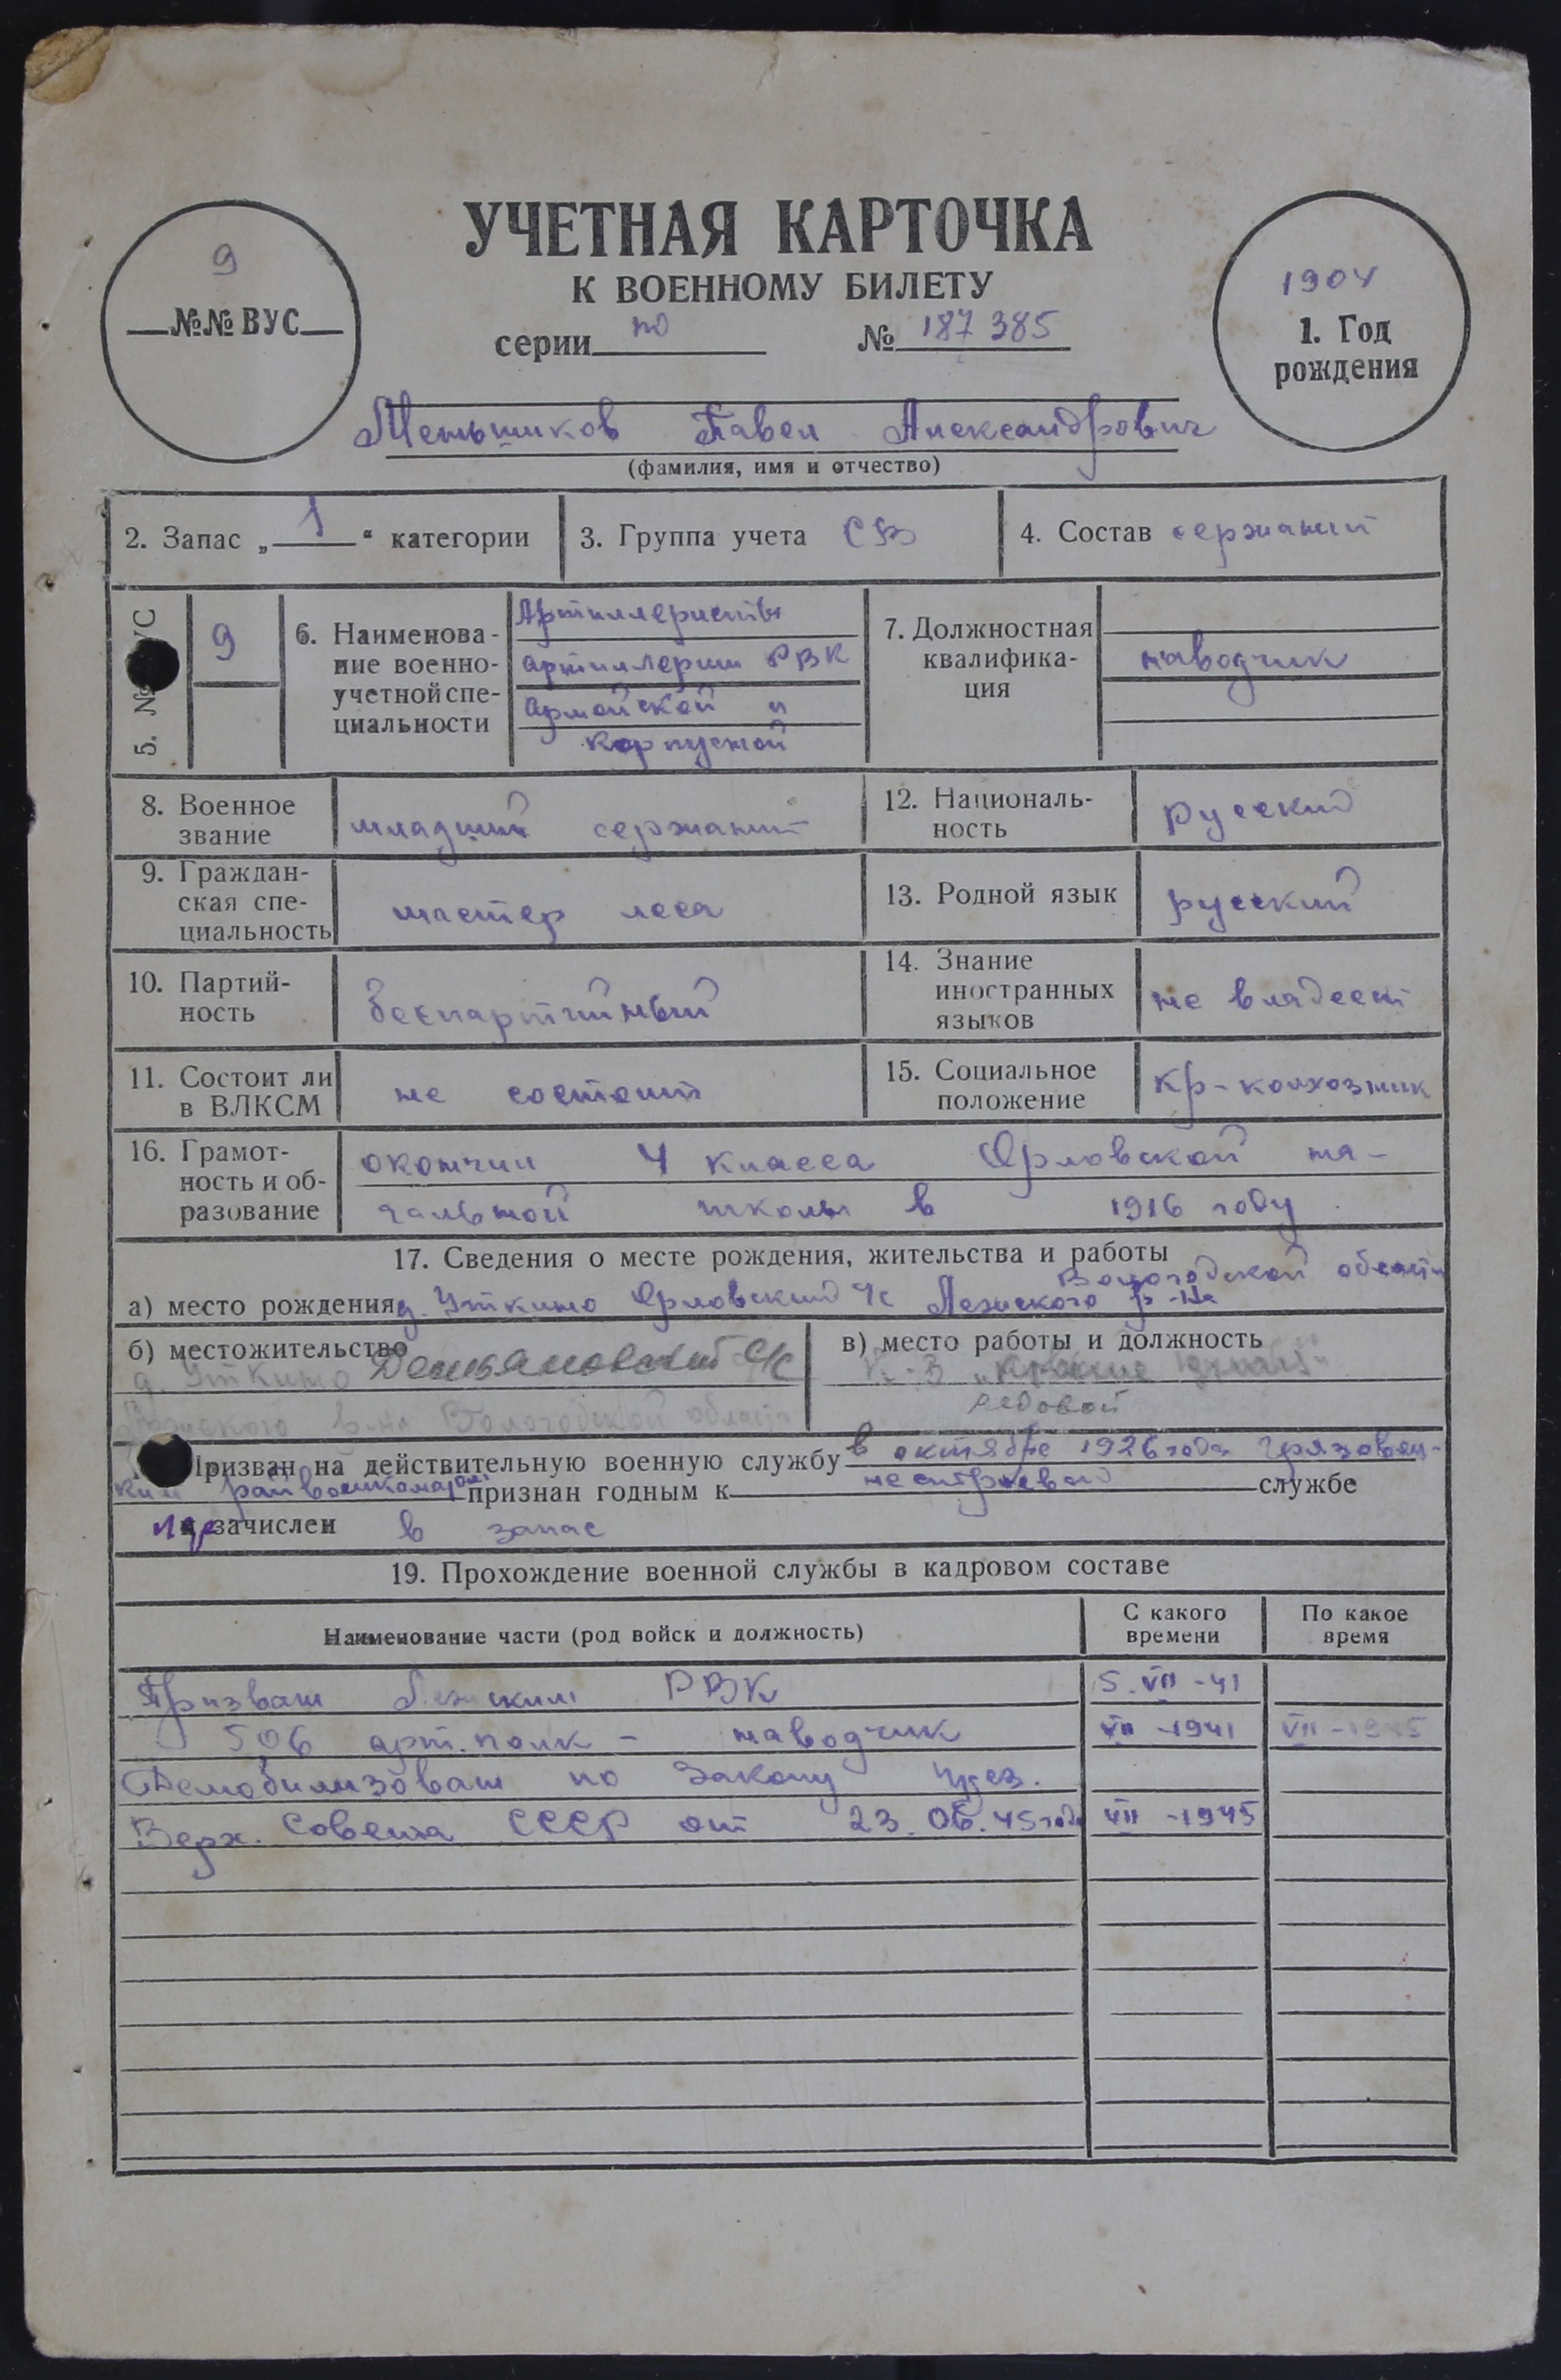 УЧЕТНАЯ КАРТОЧКА
К ВОЕННОМУ БИЛЕТУ
серии по № 187385
9
№№ ВУС
1904
1. Год
рождения
Меньшиков Павел Александрович
(фамилия, имя и отчество)
2. Запас „1“ категории
3. Группа учета СВ
4. Состав сержант
5. № УС
9
6. Наименова-
ние военно-
учетной спе-
циальности
Артиллеристы
артиллерии РВК
армейской и
корпусной
7. Должностная
квалифика-
ция
наводчик
8. Военное
звание
младший сержант
12. Националь-
ность
русский
9. Граждан-
ская спе-
циальность
мастер леса
13. Родной язык
русский
10. Партий-
ность
беспартийный
14. Знание
иностранных
языков
не владеет
11. Состоит ли
в ВЛКСМ
не состоит
15. Социальное
положение
кр-колхозник
16. Грамот-
ность и об-
разование
окончил 4 класса Орловской на-
чальной школы в 1916 году
17. Сведения о месте рождения, жительства и работы
Вологодской области
а) место рождения д. Уткино Орловский с/с Лежского р-на
б) местожительство
д. Уткино Демьяновский с/с
Лежского р-на Вологодской области
в) место работы и должность
К-З „Красные
редовой
Призван на действительную военную службу в октябре 1926 года Грязовец-
ким райвоенкоматом признан годным к нестроевой службе
и зачислен в запас
19. Прохождение военной службы в кадровом составе
Наименование части (род войск и должность)
С какого
времени
По какое
время
Призван Лежским РВК 5.VII-41
506 арт. полк – наводчик VII-1941 VII-1945
Демобилизован по Закону през.
Верх. Совета СССР от 23.06.45 года VII-1945